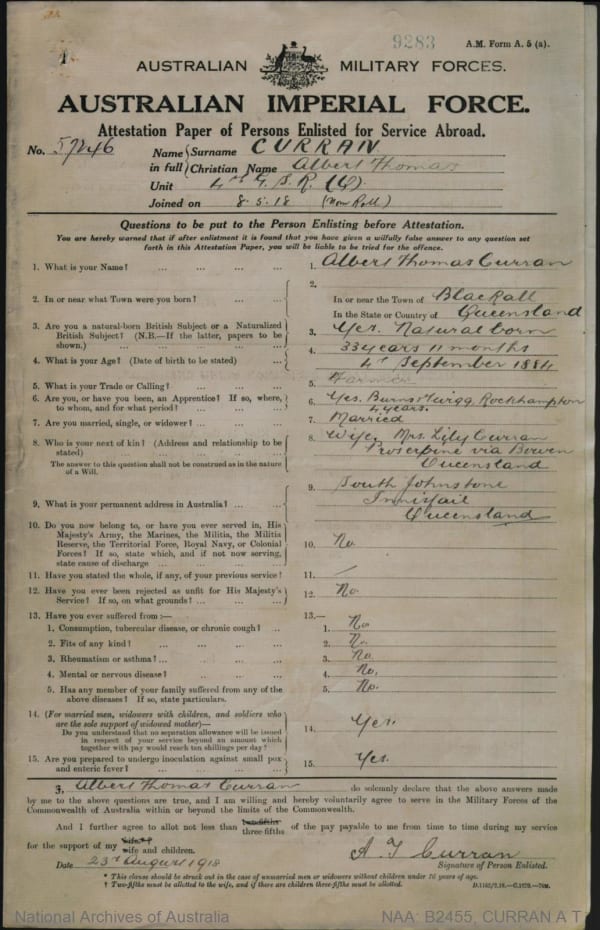 9283
A.M. Form A. 5 (a).
AUSTRALIAN MILITARY FORCES.
AUSTRALIAN IMPERIAL FORCE.
Attestation Paper of Persons Enlisted for Service Abroad.
No. 57246 Name in full { Surname CURRAN
Christian Name Albert Thomas
Unit 4th G.S.R. (Q)
Joined on 8.5.18 (Non Roll)
Questions to be put to the Person Enlisting before Attestation.
You are hereby warned that if after enlistment it is found that you have given a wilfully false answer to any question set
forth in this Attestation Paper, you will be liable to be tried for the offence.
1. What is your Name? ... ... ... ... 1. Albert Thomas Curran
2. In or near what Town were you born? ... ... 2. In or near the Town of Blackall
In the State or Country of Queensland
3. Are you a natural-born British Subject or a Naturalized
British Subject? (N.B.—If the latter, papers to be
shown.) ... ... ... ... 3. Yes. Natural born
4. What is your Age? (Date of birth to be stated) ... 4. 33 years 11 months
4th September 1884
5. What is your Trade or Calling? ... ... ... 5. Farmer
6. Are you, or have you been, an Apprentice? If so, where,
to whom, and for what period? ... ... ... 6. Yes. Burns & Twigg, Rockhampton
4 years.
7. Are you married, single, or widower? ... ... ... 7. Married
8. Who is your next of kin? (Address and relationship to be
stated) ... ... ... ... 8. Wife, Mrs. Lily Curran
Proserpine via Bowen
Queensland
The answer to this question shall not be construed as in the nature
of a Will.
9. What is your permanent address in Australia? ... ... 9. South Johnstone
Innisfail
Queensland
10. Do you now belong to, or have you ever served in, His
Majesty's Army, the Marines, the Militia, the Militia
Reserve, the Territorial Force, Royal Navy, or Colonial
Forces? If so, state which, and if not now serving,
state cause of discharge ... ... ... 10. No
11. Have you stated the whole, if any, of your previous service? 11. /
12. Have you ever been rejected as unfit for His Majesty's
Service? If so, on what grounds? ... ... ... 12. No.
13. Have you ever suffered from :— 13.—
1. Consumption, tubercular disease, or chronic cough? .. 1. No
2. Fits of any kind? ... ... ... ... 2. No.
3. Rheumatism or asthma? ... ... ... ... 3. No.
4. Mental or nervous disease? ... ... ... 4. No.
5. Has any member of your family suffered from any of the
above diseases? If so, state particulars. 5. No.
14. (For married men, widowers with children, and soldiers who
are the sole support of widowed mother)—
Do you understand that no separation allowance will be issued
in respect of your service beyond an amount which
together with pay would reach ten shillings per day? ... 14. Yes.
15. Are you prepared to undergo inoculation against small pox
and enteric fever? ... ... ... ... 15. Yes.
I, Albert Thomas Curran do solemnly declare that the above answers made
by me to the above questions are true, and I am willing and hereby voluntarily agree to serve in the Military Forces of the
Commonwealth of Australia within or beyond the limits of the Commonwealth.
And I further agree to allot not less than two-fifths three-fifths of the pay payable to me from time to time during my service
for the support of my wife wife and children.
Date 23rd August 1918 A T Curran
Signature of Person Enlisted.
* This clause should be struck out in the case of unmarried men or widowers without children under 16 years of age.
† Two-fifths must be allotted to the wife, and if there are children three-fifths must be allotted.
National Archives of Australia
NAA: B2455, CURRAN A T